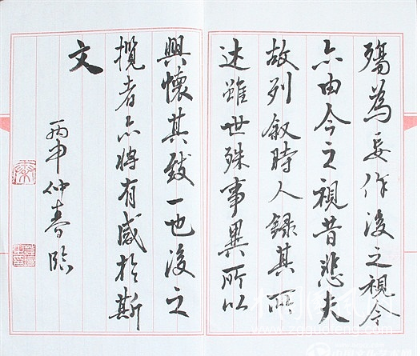 殤為妄作後之視今
亦由今之視昔悲夫
故列叙時人錄其所
述雖世殊事異所以
興懷其致一也後之
攬者亦將有感於斯
文
丙申仲春臨